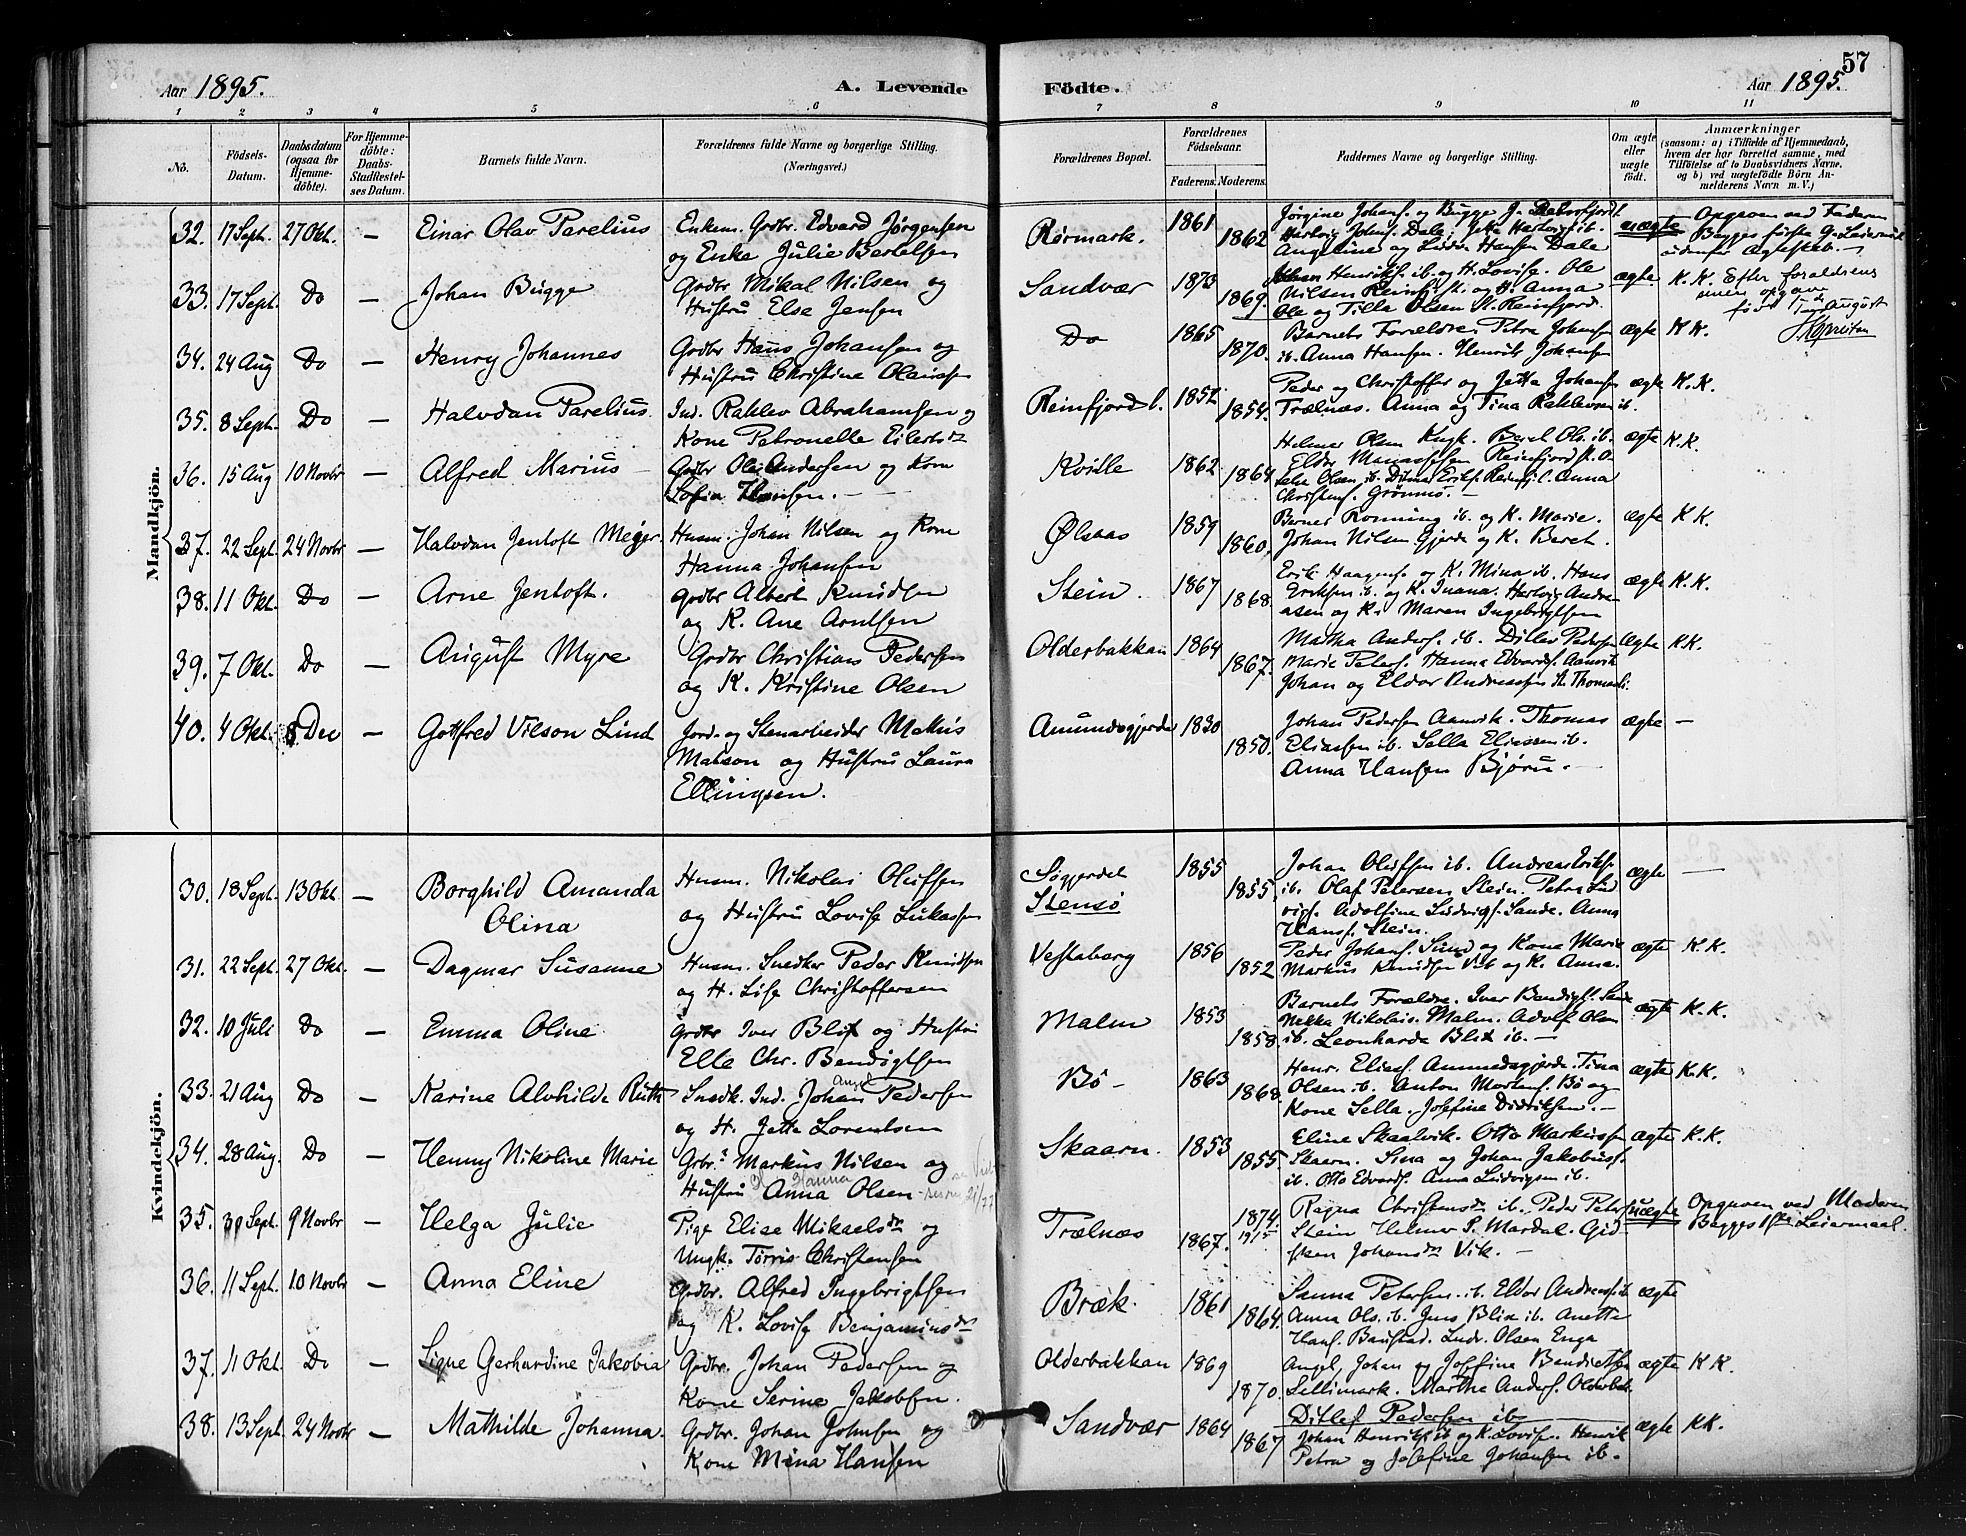 57
Aar 1895.
A. Levende
Födte.
Aar 1895.
1 2 3 4 5 6 7 8 9 10 11
No.
Födsels-Datum.
Daabsdatum (ogsaa for Hjemmedöbte).
For Hjemmedöbte: Daabs-Stadfæstelses Datum.
Barnets fulde Navn.
Forældrenes fulde Navne og borgerlige Stilling. (Næringsvei.)
Forældrenes Bopæl.
Forældrenes Födselsaar.
Faderens. Moderens.
Faddernes Navne og borgerlige Stilling.
Om ægte eller uægte födt.
Anmærkninger
(saasom: a) i Tilfælde af Hjemmedaab, hvem der har forrettet samme, med Tilföielse af to Daabsvidners Navne, og b) ved uægtefödte Börn Anmelderens Navn m. V.)
Mandkjön.
32. 17 Sept. 27 Okt. — Einar Olav Parelius
Enkem. Grdbr. Edvard Jørgensen
og Enke Julie Bertelsen
Rørmark. 1861 1862
Angeline og Hansen Dale
uægte
Opgiven ved Faderen
Begges første Leiermaal
udenfor Ægteskab.
33. 17 Sept. Do — Johan Bugge
Grdbr Mikal Nilsen og
Hustru Else Jensen
Sandvær 1873 1869.
Johan Henriks. ib. og H. Lovise. Ole
Nilsen Reinfj. og H. Anna
Ole og Tilla Olsen Reinfjord.
ægte
K. K. Efter forældrenes
senere opgave
født 17 August
34. 24 Aug Do — Henry Johannes
Grdbr Hans Johansen og
Hustru Christine Olaissen
Do 1865 1870.
Barnets Forældre Petra Johansen
ib. Anna Hansen. Henrik Johansen
ægte K. K.
35. 8 Sept. Do — Halvdan Parelius.
Ind. Raklev Abrahamsen og
Kone Petronelle Eilertsdtr
Reinfjord 1852 1854.
Peder og Christoffer og Jetta Johansen
Trælnæs. Anna og Tina Raklevsen ib.
ægte K. K.
36. 15 Aug 10 Novbr — Alfred Marius —
Grdbr Ole Andersen og Kone
Sofia Hansen. —
Kvitle 1862 1864
Helmer Olsen Ungk. Beret Ols. ib.
Eldor Manassesen Reinfjord
Christens. Grønmo. —
ægte K. K.
37. 22 Sept. 24 Novbr — Halvdan Jentoft Meyer.
Husm. Johan Nilsen og Kone
Hanna Johansen
Ølsaas 1859 1860.
Barnes Ronning ib. og K. Marie.
Johan Nilsen Gjerde og K. Beret.
ægte K K.
38. 11 Okt. Do — Arne Jentoft.
Grdbr Albert Knudsen
og K. Ane Arntsen
Stein. 1867 1868.
Erik Haagens. og K. Mina ib. Hans
Eriksen ib. og K. Inana. Hartvig Andreasen
og K. Maren Ingebrigtsen
ægte K. K.
39. 7 Okt. Do — August Myre
Grdbr Christian Pedersen
og K. Kristine Olsen
Olderbakkan 1864 1867.
Martha Anders. ib. Ditlev Pedersen
Marie Peters. Hanna Edvards. Aanvik
Johan og Eldor Andreassen
ægte K.K.
40. 4 Okt. 8 Dec — Gottfred Vilson Lind
Jord- og Stenarbeider Matius
Matson og Hustru Laura
Ellingsen.
Amundsgjerde 1830 1850.
Johan Pedersen Aanvik. Thomas
Eliassen ib. Sella Eliassen ib.
Anna Hansen Bjørn. —
ægte —
Kvindekjön.
30. 18 Sept. 13 Okt — Borghild Amanda
Olina
Husm. Nikolai Olufsen
og Hustru Lovise Lukassen
Søgjerdet
Stensø
1855 1855.
Johan Olufsen ib. Andreas Eriks.
ib. Olaf Petersen Stein. Petra Ludvigs.
Adolfine Ludvigs. Sande. Anna
Hans. Stein.
ægte —
31. 22 Sept. 27 Okt. — Dagmar Susanne
Husm. Snedker Peder Knudsen
og H. Lise Christoffersen
Vestaberg 1856 1852
Peder Johans. Sund og Kone Marie
Markus Knudsen Vik og K. Anna.
ægte K. K.
32. 10 Juli Do — Emma Oline
Grdbr Iver Blix og Hustru
Elle Chr. Bendigtsen
Malm 1853 1858.
Barnets Forældre. Iver Bendigts. Sande
Nekka Nikolais. Malm. Adolf Olsen
ib. Leonharda Blix ib. —
ægte K. K.
33. 21 Aug Do — Karine Alvhilde Ruth
Snedk. Ind. Johan Angel Pedersen
og H. Jette Lorentsen
Bø — 1863 1868.
Henr. Elias. Ammundsgjerde. Tina
Olsen ib. Anton Mortens. Bø og
Kone Sella. Josefine Didriksen. —
ægte K.K.
34. 28 Aug. Do — Henny Nikoline Marie
Grbr. Markus Nilsen og
Hustru Anna Olsen
Hanna
Skaarn. 1853 1855.
Eline Skaalvik. Otto Markussen
Skaarn. Sina og Johan Jakobus.
ib. Otto Edvards. Anna Ludvigsen ib.
ægte K.K.
35. 30 Sept. 9 Novbr — Helga Julie
Pige Elise Mikaelsdtr og
Ungk. Tørris Christensen
Trælnæs 1867. 1874.
Ragna Christensdtr ib. Peder Peters.
Stein Helmer P. Mardal.
Johansdtr Vik. —
uægte
Opgiven ved Moderen
Begges 1ste Leiermaal.
36. 11 Sept. 10 Novbr — Anna Eline
Grdbr. Alfred Ingebrigtsen
og K. Lovise Benjaminsdtr
Bræk. 1861 1864.
Sanna Petersen ib. Eldor Andreas. ib
Anna Ols. ib. Jens Blix ib. Anette
Hans. Baustad. Ludv. Olsen Enga
ægte
37. 11 Okt. Do — Signe Gerhardine Jakobia
Grdbr. Johan Pedersen og
Kone Serine Jakobsen.
Olderbakkan 1869 1870.
Angel, Johan og Josefine Bendictsen
Sellimark. Martha Anders. Olderbak.
Ditlef Pedersen ib.
ægte K K.
38. 13 Sept. 24 Novbr — Mathilde Johanna.
Grdbr. Johan Johnsen og
Kone Mina Hansen
Sandvær 1864 1867
Johan Henriks. ib og K. Lovise. Henrik
Petra og Josefine Johansen ib.
ægte KK.